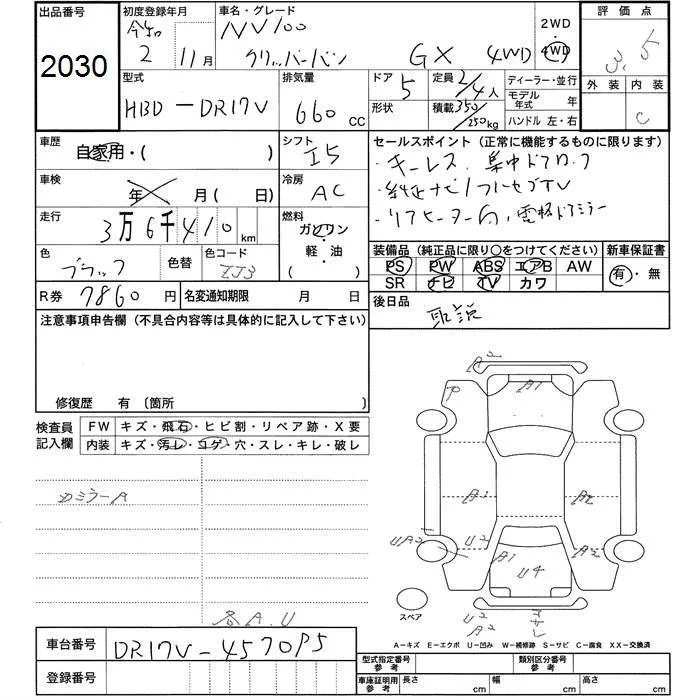 出品番号 初度登録年月 車名・グレード 2WD 評価点
2030 2 11月 NV100 クリッパーバン GX 4WD 4WD 3.5
型式 排気量 ドア 定員 2/4人 ディーラー・並行 外装 内装
HBD-DR17V 660 CC 5 形状 積載 350/250kg モデル年式 年 C
ハンドル 左・右
車歴 自家用・( ) シフト I5 セールスポイント (正常に機能するものに限ります)
・キーレス、集中ドアロック
車検 年 月 ( 日) 冷房 AC ・純正ナビ/フルセグTV
走行 3万6千410km 燃料 ガソリン ・リアヒーター 電格ドアミラー
軽・油
( )
色 ブラック 色替 色コード ZJ3 装備品 (純正品に限り○をつけてください) 新車保証書
PS PW ABS エアB AW 有・無
R券 7860円 名変通知期限 月 日 SR ナビ TV カワ
注意事項申告欄 (不具合内容等は具体的に記入して下さい) 後日品 取説
修復歴 有 〔箇所 〕
検査員記入欄 FW キズ・飛石・ヒビ割・リペア跡・X要
内装 キズ・汚レ・コゲ・穴・スレ・キレ・破レ
A2
P A1
ミラーA
A2 A2
UA2 U A2 A1 U4 UA2
各A.U
スペア
U2
A2 サビ
A-キズ E-エクボ U-凹み W-補修跡 S-サビ C-腐食 XX-交換済
車台番号 DR17V-457095
登録番号
型式指定番号 参考 類別区分番号 参考
車庫証明用 参考 長さ cm 幅 cm 高さ cm